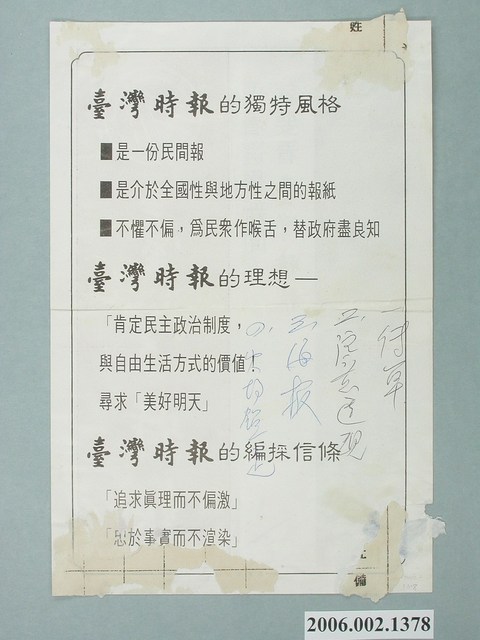 姓
臺灣時報的獨特風格
■是一份民間報
■是介於全國性與地方性之間的報紙
■不懼不偏，為民衆作喉舌，替政府盡良知
臺灣時報的理想—
「肯定民主政治制度，
與自由生活方式的價值！
尋求「美好明天」
臺灣時報的編採信條
「追求眞理而不偏激」
「忠於事實而不渲染」
一傳單
三海報
備
2006.002.1378